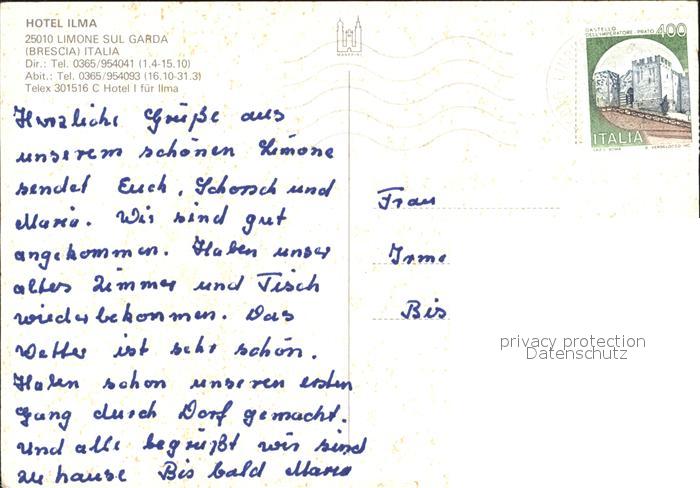 HOTEL ILMA
25010 LIMONE SUL GARDA
(BRESCIA) ITALIA
Dir.: Tel. 0365/954041 (1.4-15.10)
Abit.: Tel. 0365/954093 (16.10-31.3)
Telex 301516 C Hotel I für Ilma
CASTELLO
DELL'IMPERATORE - PRATO 400
ITALIA
Herzliche Grüße aus
unserem schönen Limone
sendet Euch, Schorsch und
Maria. Wir sind gut
angekommen. Haben unser
altes Zimmer und Tisch
wiederbekommen. Das
Wetter ist sehr schön.
Haben schon unseren ersten
Gang durch Dorf gemacht.
Und alle begrüßt wir sind
zu hause Bis bald Maria
Frau
Irme
Bis
privacy protection
Datenschutz